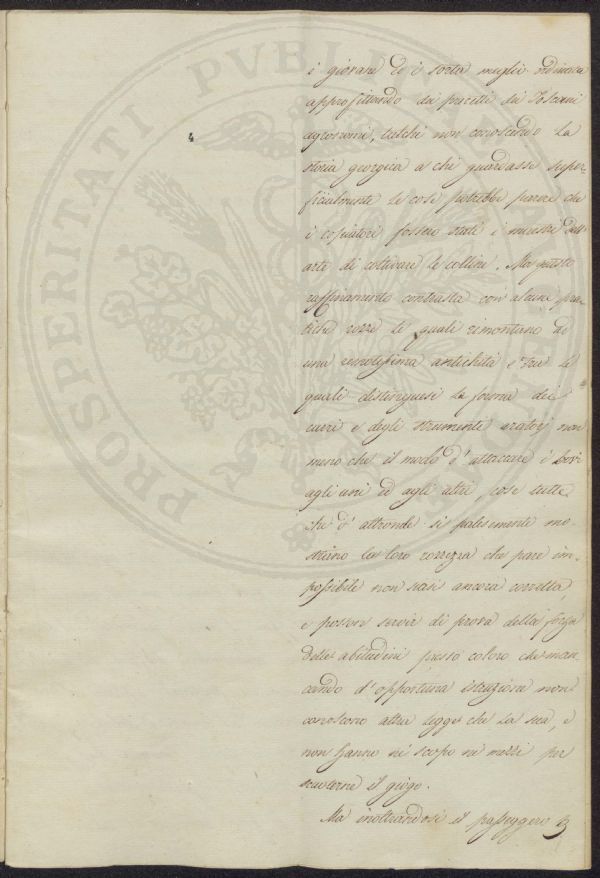 PROSPERITATI PVBLICAE
4
i giovani ed è sorta meglio ordinata
approfittando dei precetti dei Toscani
agronomi, talchè non conoscendo la
storia georgica a chi guardasse super-
ficialmente le cose potrebbe parere che
i copiatori fossero stati i maestri dell'
arte di coltivare le colline. Ma questo
raffinamento contrasta con alcune pra-
tiche rozze le quali rimontano ad
una remotissima antichità e tra le
quali distinguesi la forma dei
carri e degli strumenti aratorj non
meno che il modo d'attaccare i bovi
agli uni ed agli altri, cose tutte
che d'altronde si palesemente mo-
strano la loro rozzezza che pare im-
possibile non siasi ancora corretta,
e possono servir di prova della forza
delle abitudini presso coloro che man-
cando d'opportuna istruzione non
conoscono altra legge che la sua, e
non hanno nè scopo nè mezzi per
scuoterne il giogo.
Ma inoltrandosi il passeggero